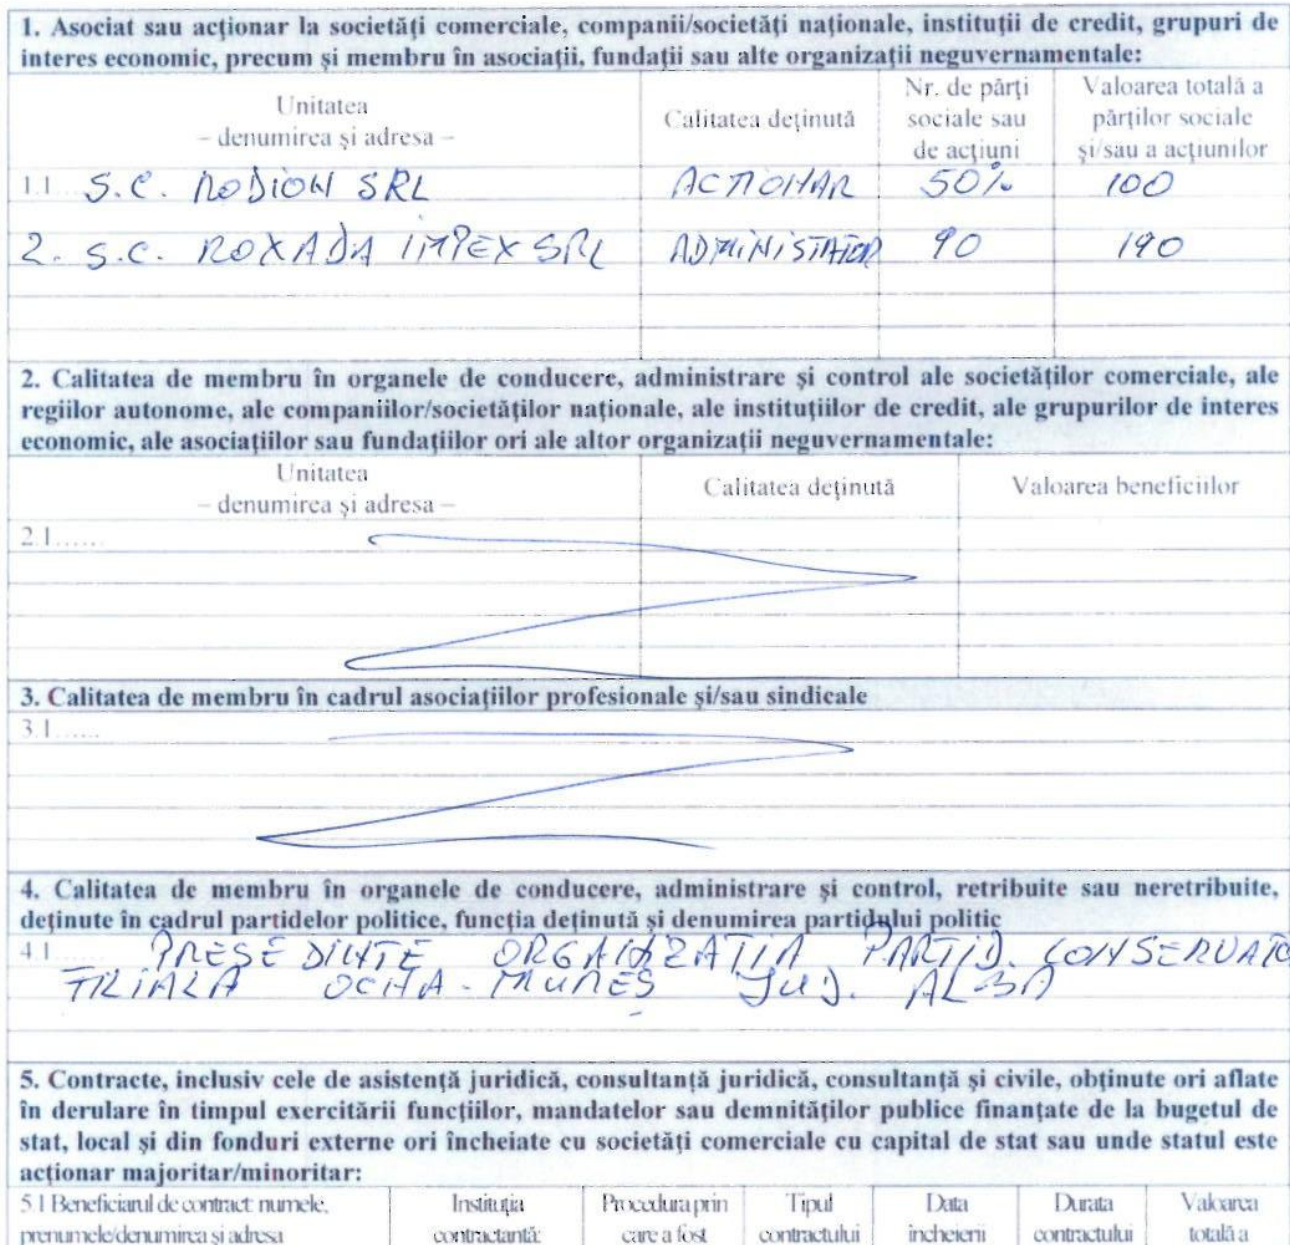 1. Asociat sau acționar la societăți comerciale, companii/societăți naționale, instituții de credit, grupuri de
interes economic, precum și membru în asociații, fundații sau alte organizații neguvernamentale:
Unitatea
– denumirea și adresa –
Calitatea deținută
Nr. de părți
sociale sau
de acțiuni
Valoarea totală a
părților sociale
și/sau a acțiunilor
1.1 S.C. RODION SRL ACTIONAR 50% 100
2. S.C. ROXADA IMPEX SRL ADMINISTATOR 90 190
2. Calitatea de membru în organele de conducere, administrare și control ale societăților comerciale, ale
regiilor autonome, ale companiilor/societăților naționale, ale instituțiilor de credit, ale grupurilor de interes
economic, ale asociațiilor sau fundațiilor ori ale altor organizații neguvernamentale:
Unitatea
– denumirea și adresa –
Calitatea deținută
Valoarea beneficiilor
2.1......
3. Calitatea de membru în cadrul asociațiilor profesionale și/sau sindicale
3.1......
4. Calitatea de membru în organele de conducere, administrare și control, retribuite sau neretribuite,
deținute în cadrul partidelor politice, funcția deținută și denumirea partidului politic
4.1 PRESEDINTE ORGANIZATIA PARTID. CONSERVATO
FILIALA OCNA-MURES JUD. ALBA
5. Contracte, inclusiv cele de asistență juridică, consultanță juridică, consultanță și civile, obținute ori aflate
în derulare în timpul exercitării funcțiilor, mandatelor sau demnităților publice finanțate de la bugetul de
stat, local și din fonduri externe ori încheiate cu societăți comerciale cu capital de stat sau unde statul este
acționar majoritar/minoritar:
5.1 Beneficiarul de contract: numele,
prenumele/denumirea și adresa
Instituția
contractantă:
Procedura prin
care a fost
Tipul
contractului
Data
încheierii
Durata
contractului
Valoarea
totală a